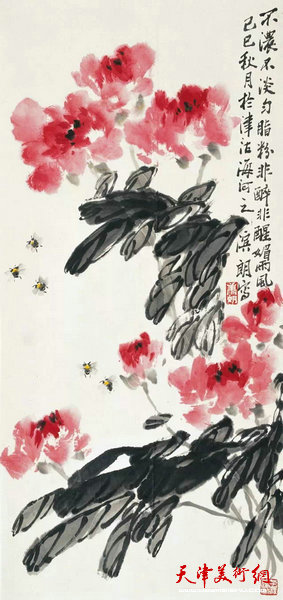 不浓不淡匀脂粉非醉非醒媚雨风
己巳秋月於津沽海河之滨朗写
天津美术网